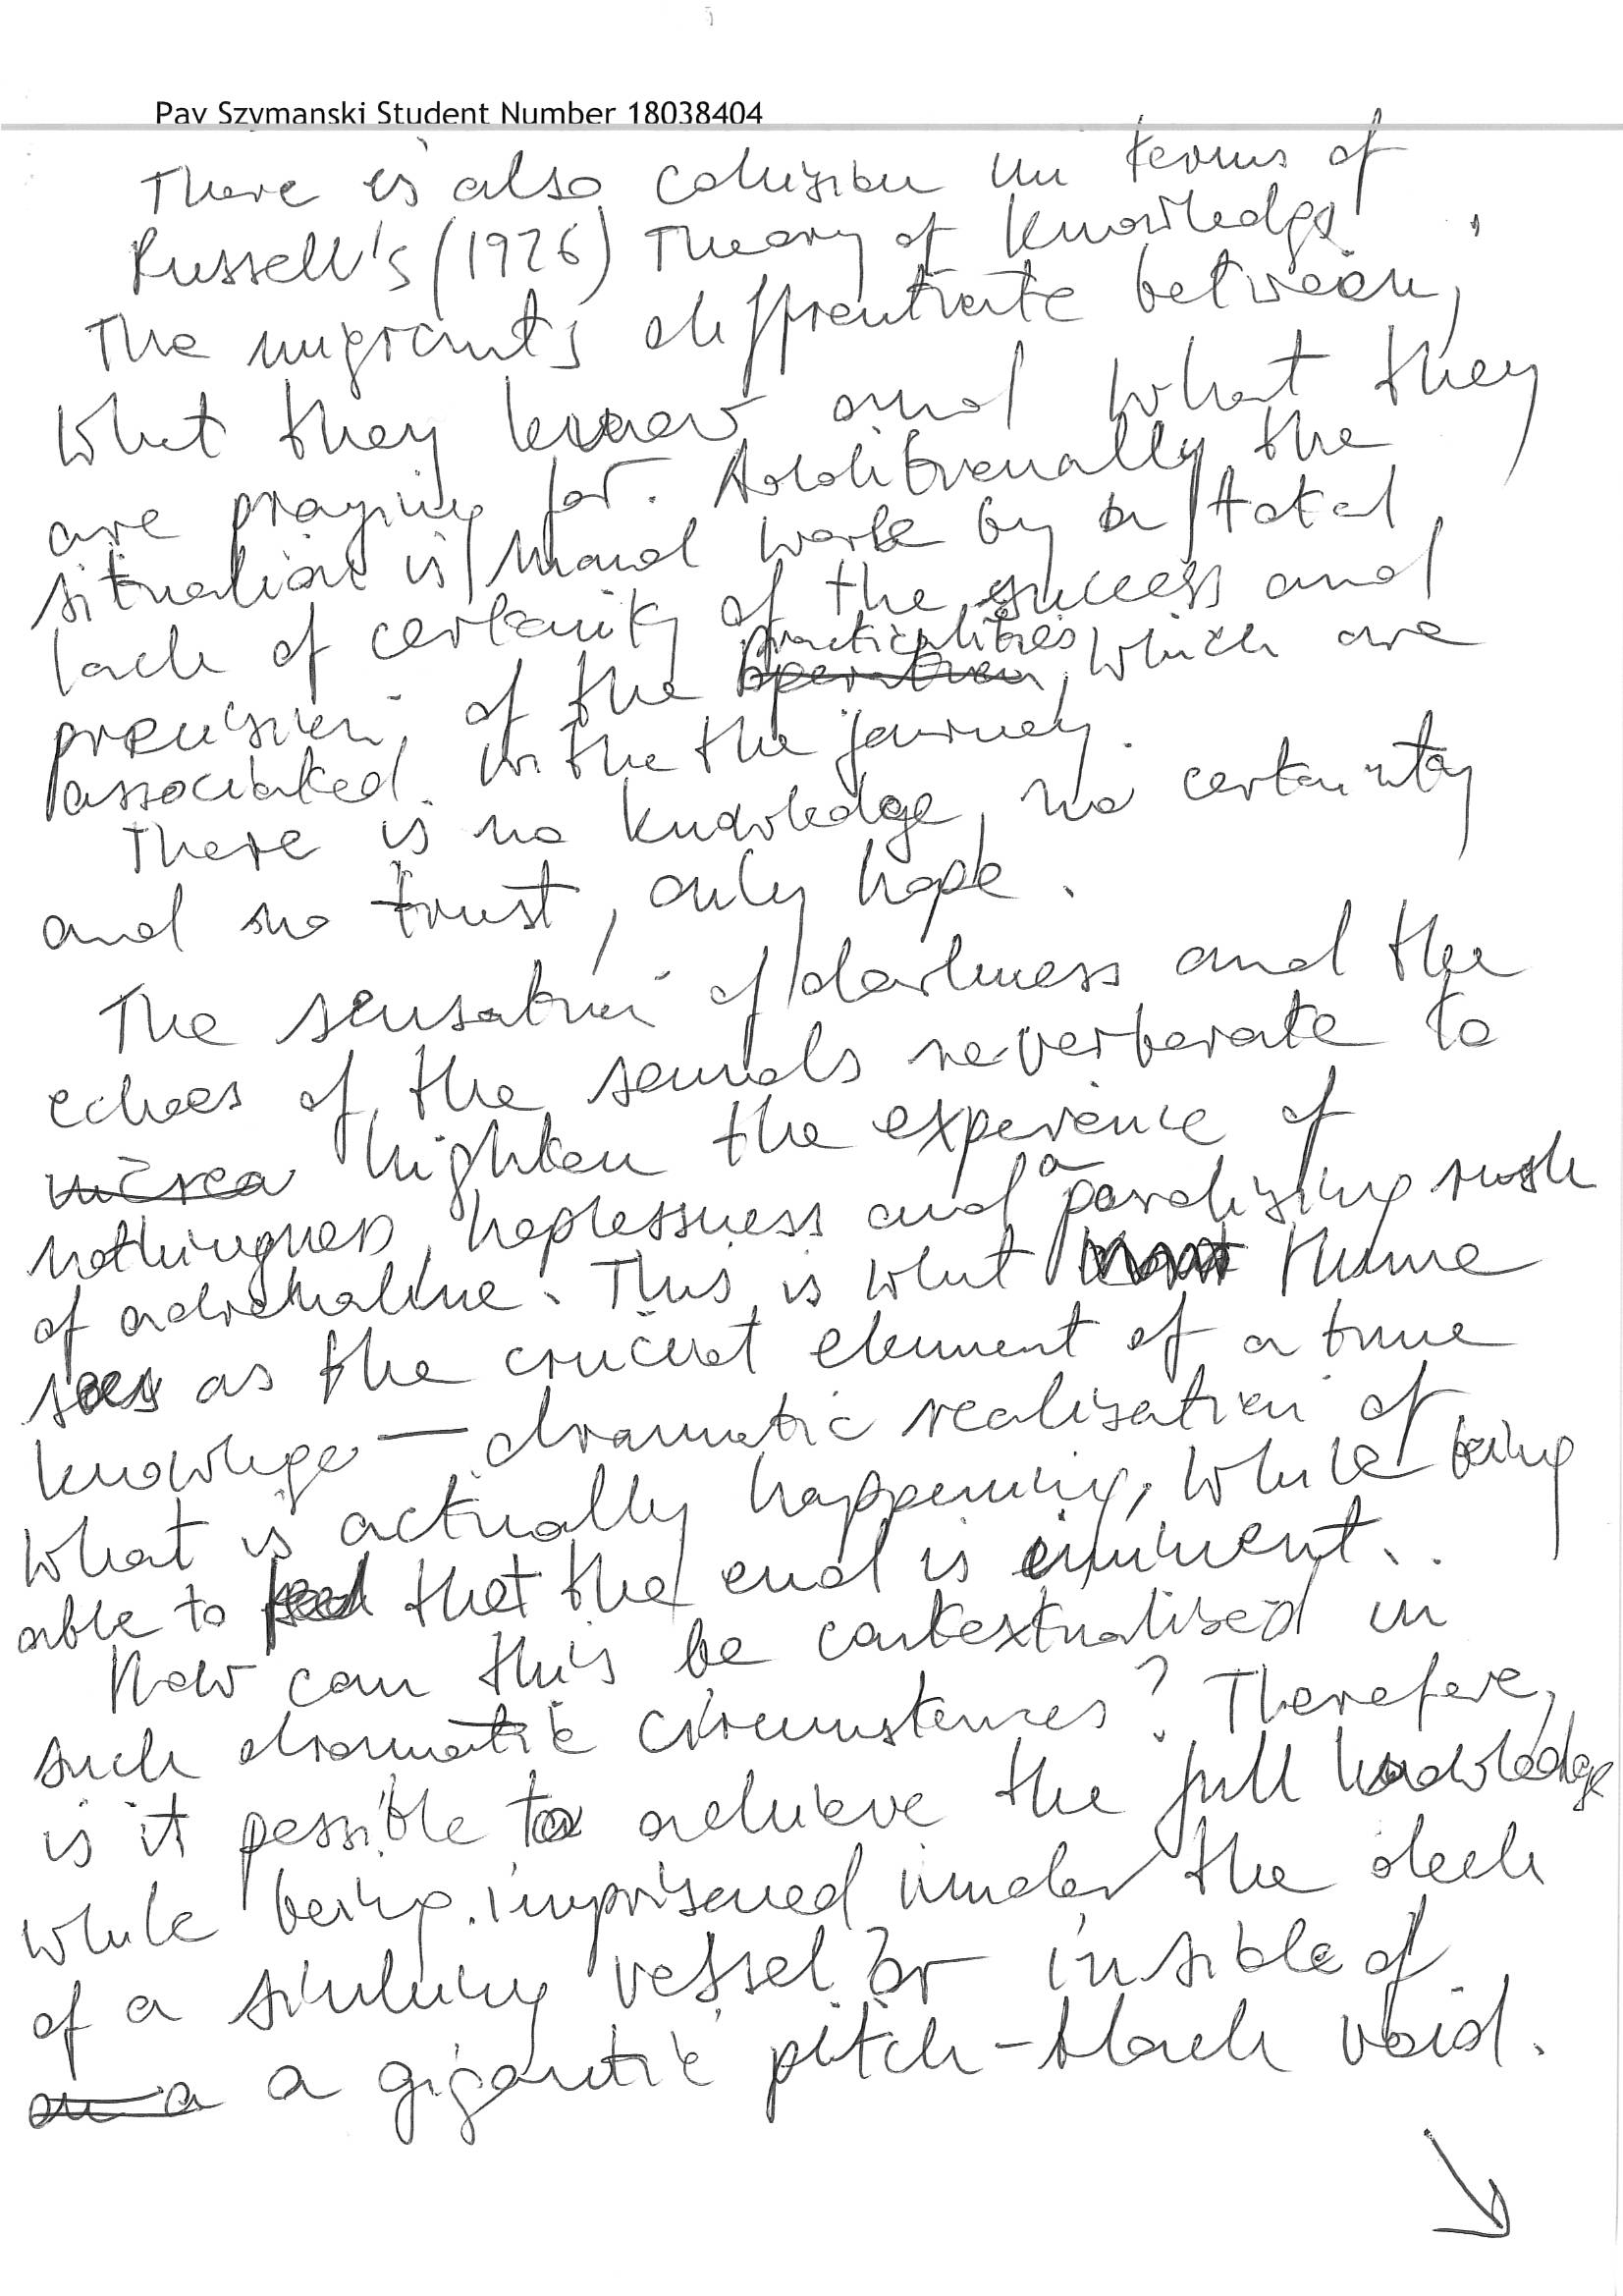 Pav Szymanski Student Number 18038404
There is also colision in terms of
Russell's (1926) Theory of Knowledge.
The migrants diffrentiate between,
what they know and what they
are praying for. Additionally the
situation is mand worse by a total
lack of certainity of the success and
precision, of the practicalities, which are
associated. withe the journey.
There is no knowledge, no certainty
and no trust, only hope.
The sensation of darkness and the
echoes of the sounds reverberate to
highten the experience of
nothingness, heplessness and a paralizing rush
of adrenaline. This is what Hume
sees as the crucial element of a true
knowlege — dramatic realisation of
what is actually happening, while being
able to feel that the end is iminent.
How can this be contextualised in
such dramatic circumstences? Therefore,
is it possible to achieve the full knowledge
while being imprisoned under the deck
of a sinking vessel or inside of
a gigantic pitch-black void.